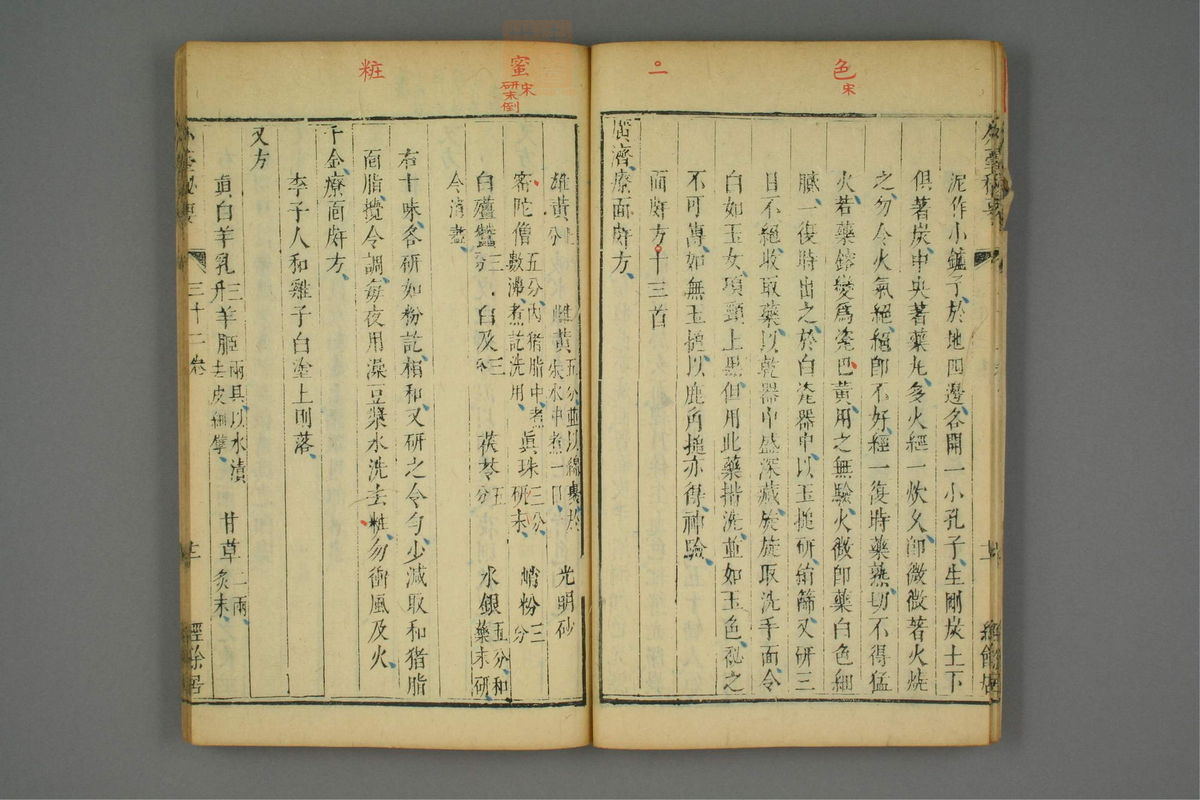 色
宋
二
泥作小爐子於地四邊各開一小孔子生剛炭土下
俱著炭中央著藥丸多火經一炊久即微微著火燒
之勿令火氣絕絕即不好經一復時藥熟切不得猛
火若藥鎔變為瓷巴黃用之無驗火微即藥白色細
膩一復時出之於白瓷器中以玉搥研絹篩又研三
日不絕收取藥以乾器中盛深藏旋旋取洗手面令
白如玉女項頸上黑但用此藥揩洗並如玉色秘之
不可傳如無玉搥以鹿角搥亦得神驗
面皯方十三首
廣濟療面皯方
蜜
宋
研末倒
粧
雄黃七分 雌黃五分並以綿裹於漿水中煮一日 光明砂
密陀僧五分內猪脂中煮數沸煮訖洗用 真珠三分研末 蛸粉三分
白殭蠶三分 白及三分 茯苓五分 水銀五分和藥末研
令消盡
右十味各研如粉訖相和又研之令勻少減取和猪脂
面脂攪令調每夜用澡豆漿水洗去粧勿衝風及火
千金療面皯方
李子人和雞子白塗上則落
又方
真白羊乳三升 羊胵兩具以水漬去皮細擘 甘草二兩炙末
外臺秘要
三十二卷
經餘居